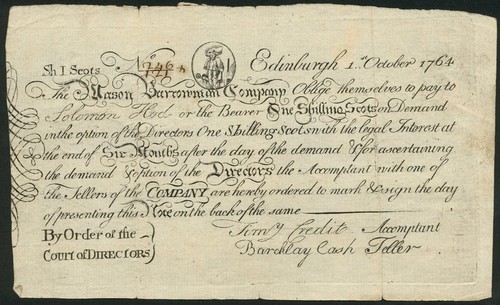 Sh I Scots No 7464 Edinburgh 1st October 1764
The Mason Barrowman Company Oblige themselves to pay to
Solomon Hod or the Bearer One Shilling Scots on Demand
in the option of the Directors One Shilling Scots with the legal Interest at
the end of Six Months after the day of the demand & for ascertaining
the demand & option of the Directors the Accomptant with one of
The Tellers of the COMPANY are hereby ordered to mark & sign the day
of presenting this Note on the back of the same
By Order of the
Court of DIRECTORS
Timy Credit Accomptant
Barchlay Cash Teller